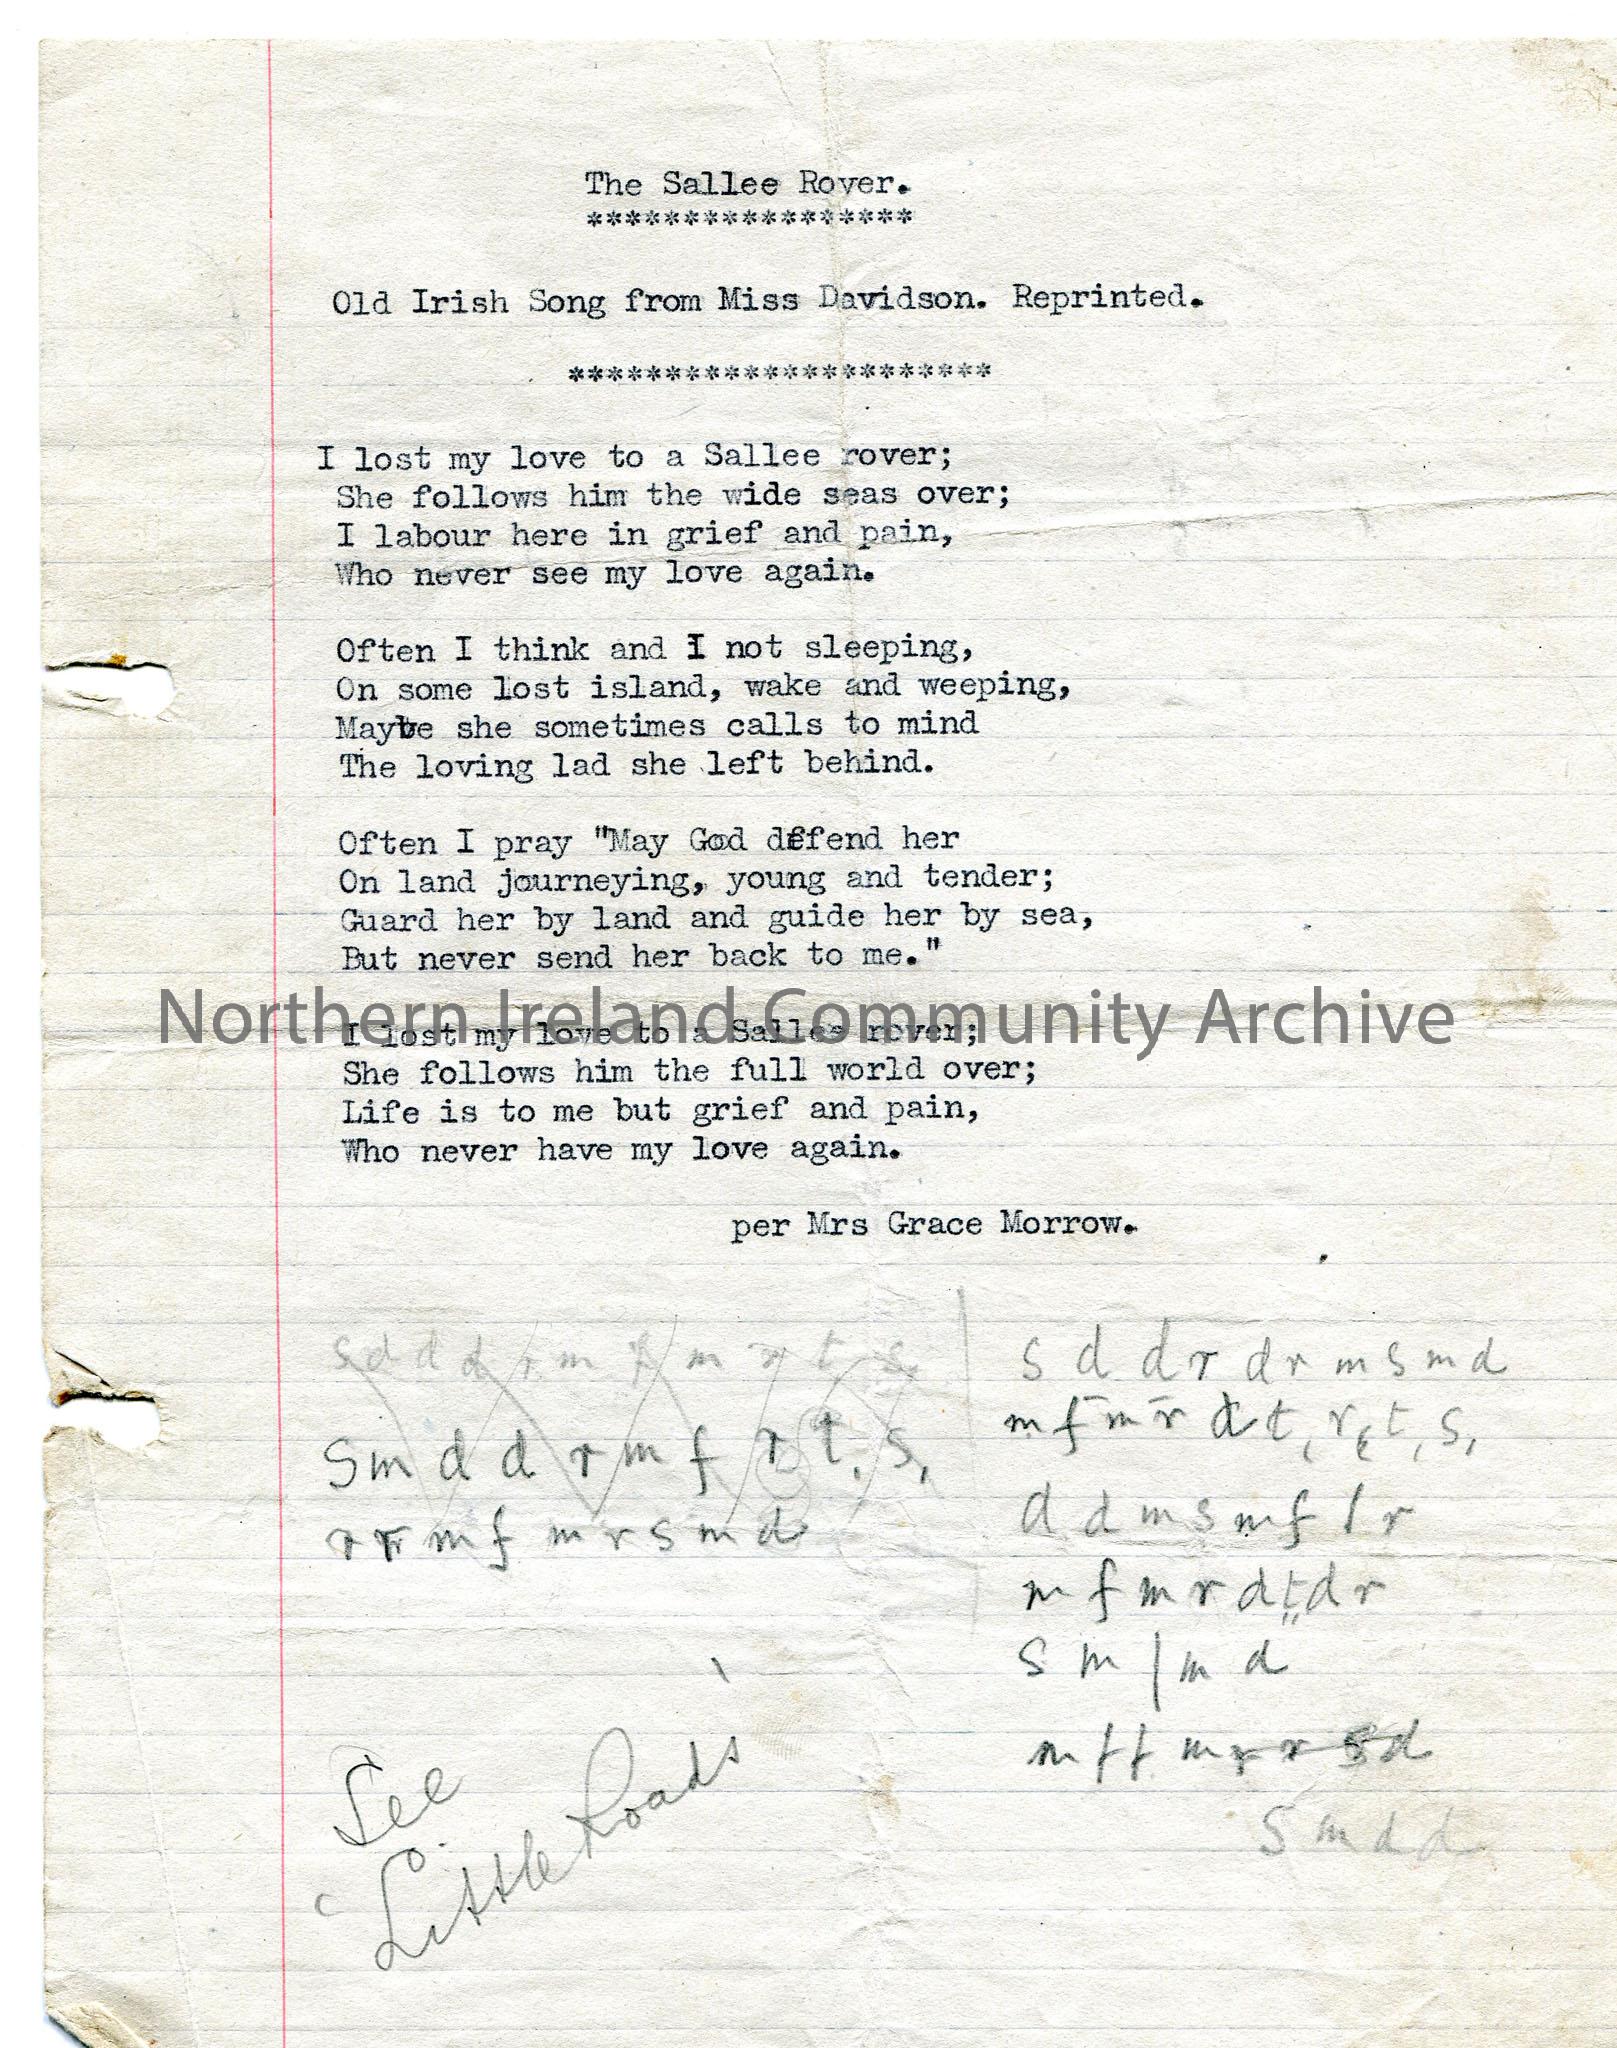 The Sallee Rover.
*****************
Old Irish Song from Miss Davidson. Reprinted.
**********************
I lost my love to a Sallee rover;
She follows him the wide seas over;
I labour here in grief and pain,
Who never see my love again.
Often I think and I not sleeping,
On some lost island, wake and weeping,
Maybe she sometimes calls to mind
The loving lad she left behind.
Often I pray "May God defend her
On land journeying, young and tender;
Guard her by land and guide her by sea,
But never send her back to me."
Northern Ireland Community Archive
I lost my love to a Sallee rover;
She follows him the full world over;
Life is to me but grief and pain,
Who never have my love again.
per Mrs Grace Morrow.
s d d d r m f m r t s,
s m d d r m f r t, s,
r r m f m r s m d
s d d r d r m s m d
m f m r d t, r t, s,
d d m s m f l r
m f m r d t, d r
s m | m d
m f f m r r s d
s m d d
See
'Little Roads'